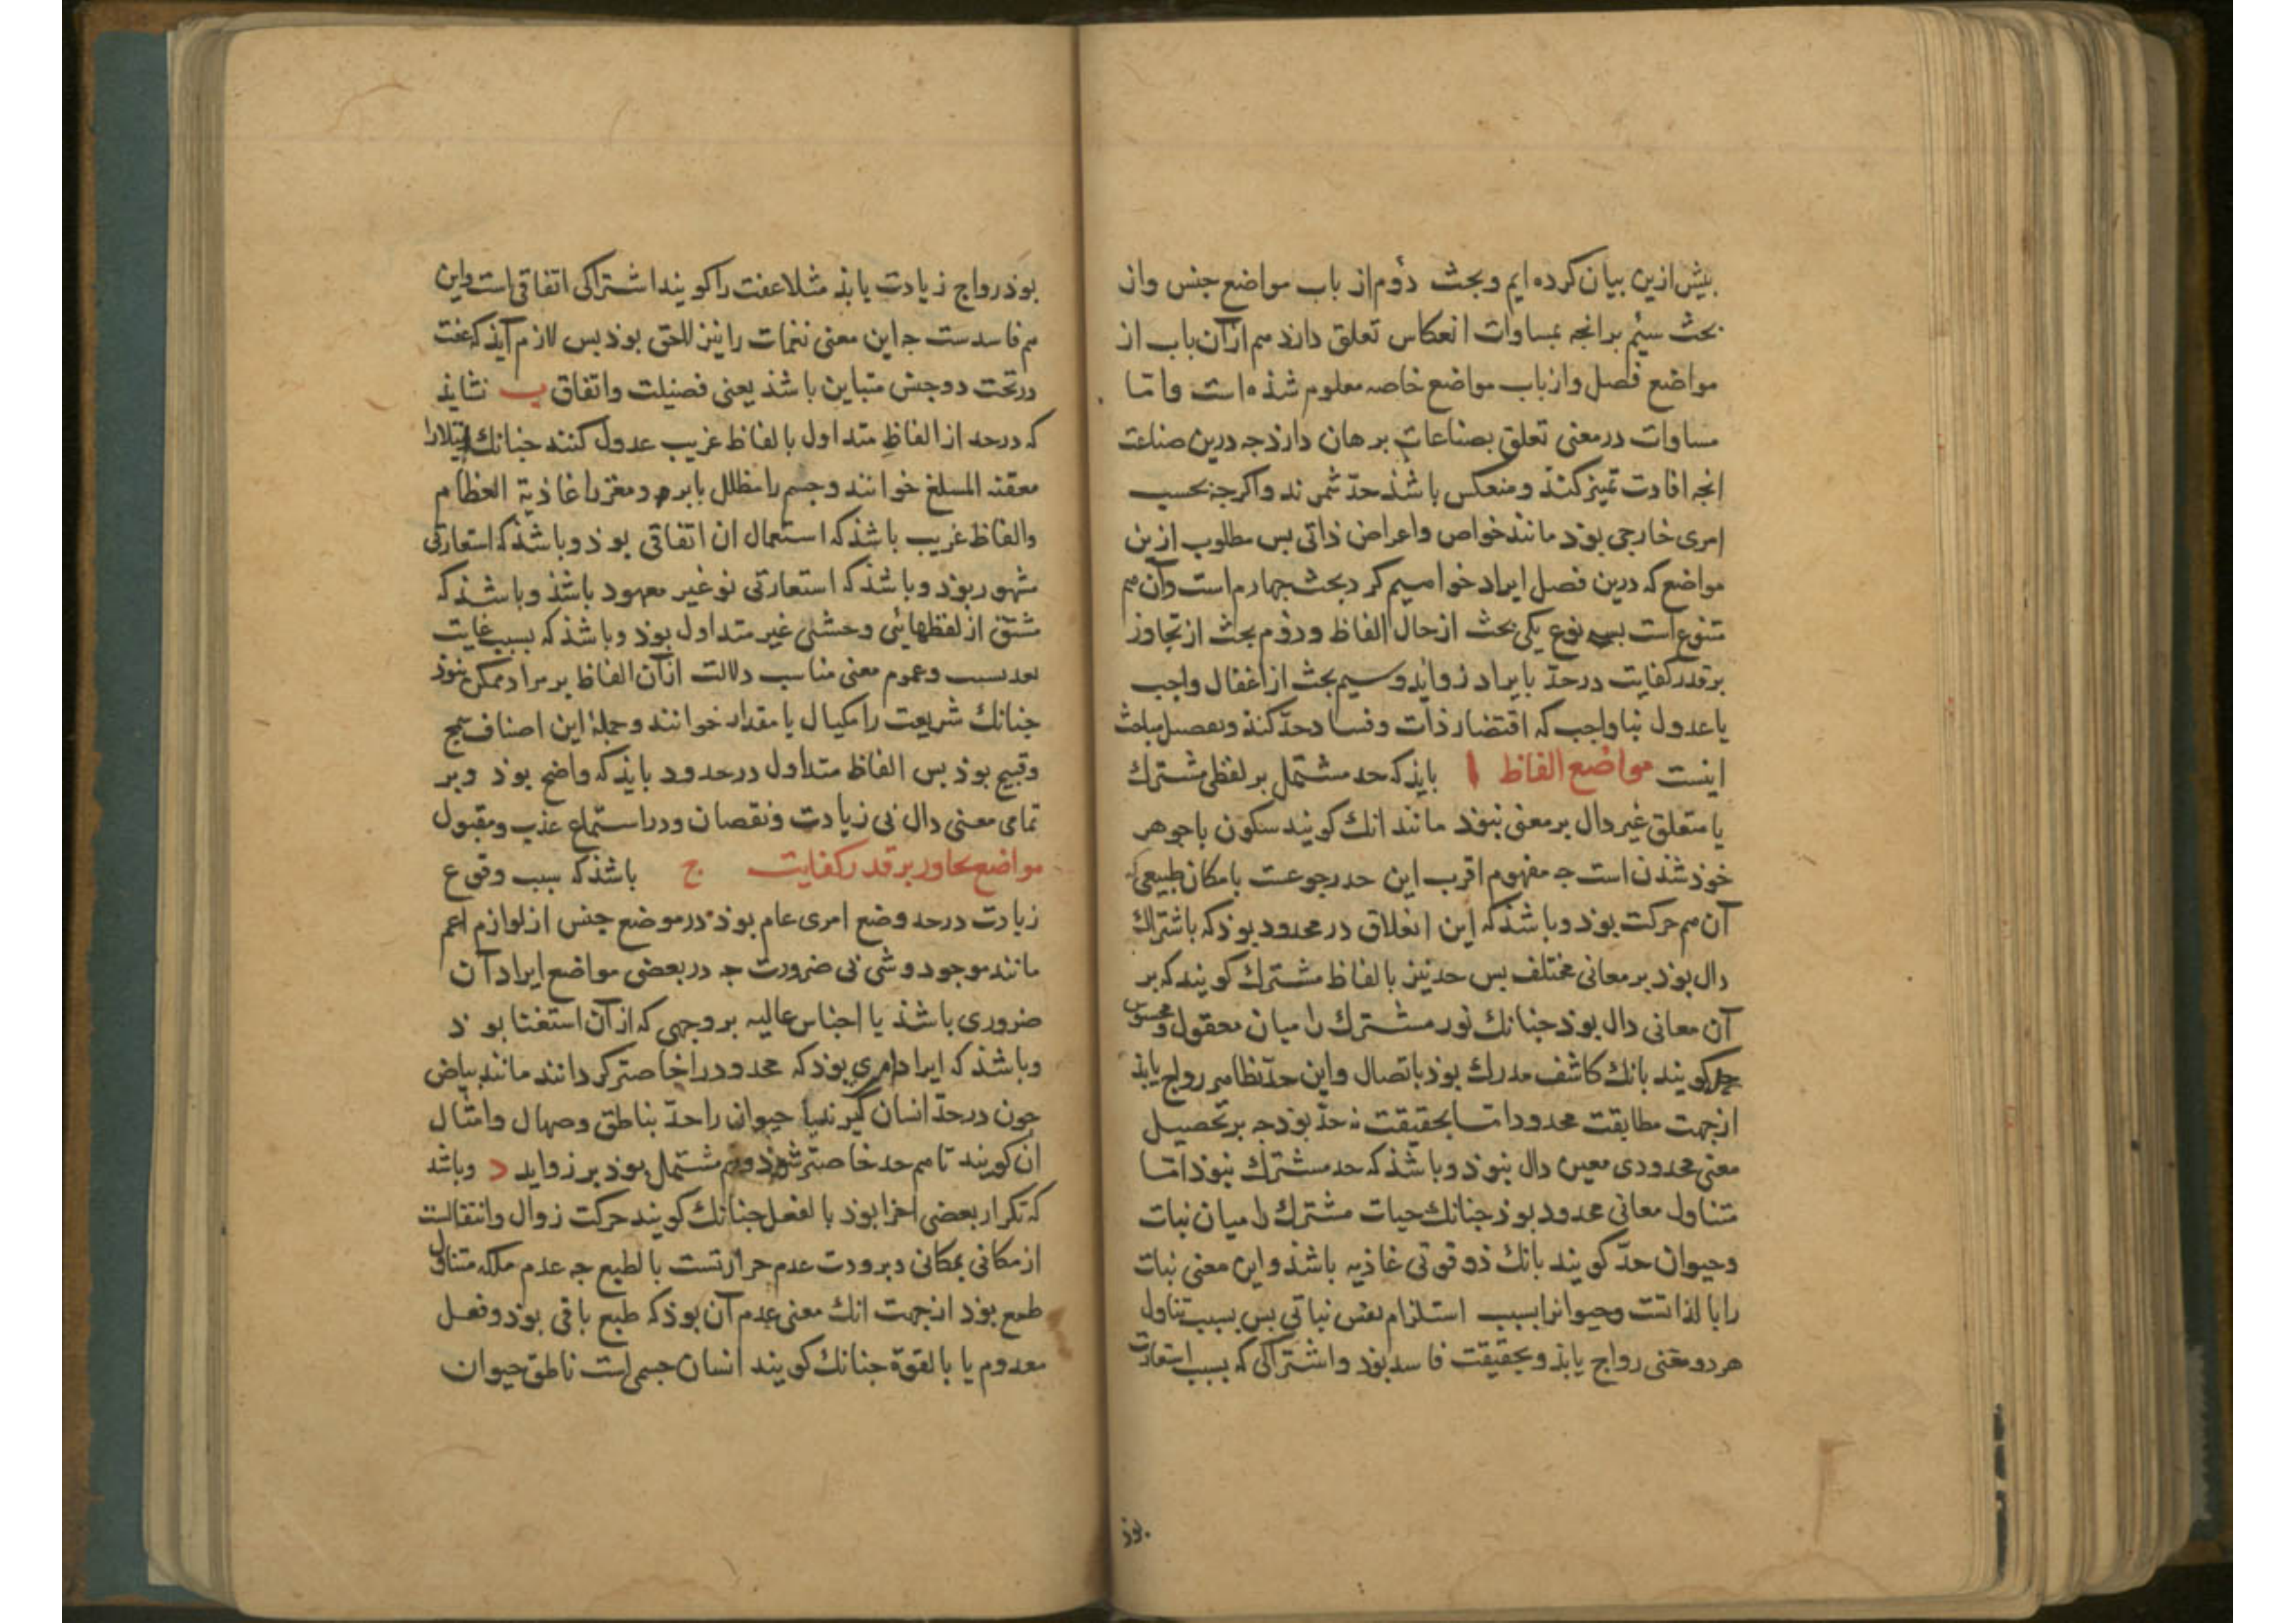 بیش ازین بیان کرده ایم و بحث دوم از باب مواضع جنس و از
بحث سیم بر انجه بمساوات انعکاس تعلق دارد هم ازان باب از
مواضع فصل و از باب مواضع خاصه معلوم شذه است و اما
مساوات در معنی تعلق بصناعات برهان دارد جه درین صناعت
انجه افادت تمیز کند و منعکس باشذ حد شمرند و اکرجه بحسب
امری خارجی بوذ مانند خواص و اعراض ذاتی بس مطلوب ازین
مواضع که درین فصل ایراد خواهیم کرد بحث جهارم است و آن هم
متنوع است بسه نوع یکی بحث از حال الفاظ و دوم بحث از تجاوز
بر قدر کفایت در حد بایراد زواید و سیم بحث از اغفال واجب
یا عدول بناواجب که اقتضاء رذآت و فساد حد کند و تفصیل مباحث
اینست مواضع الفاظ ا بایذ که حد مشتمل بر لفظی مشترک
یا متعلق غیر دال بر معنی نبوذ مانند انک کویند سکون با جوهر
خوذ شذن است جه مفهوم اقرب این حد رجوعست بامکان طبیعی که
آن هم حرکت بوذ و باشذ که این انغلاق در محدود بوذ که باشتراک
دال بوذ بر معانی مختلف بس حد نیز بالفاظ مشترک کویند که بر
آن معانی دال بوذ جنانک نور مشترک را میان معقول و محسوس
حد کویند بانک کاشف مدرک بوذ باتصال و این حد بظاهر رواج یابذ
از جهت مطابقت محدود اما بحقیقت نه حد بوذ جه بر تحصیل
معنی محدودی معین دال نبوذ و باشذ که حد مشترک نبوذ اما
متناول معانی محدود بوذ جنانک حیات مشترک را میان نبات
و حیوان حد کویند بانک ذو قوتی غاذیه باشذ و این معنی نبات
را بالذاتست و حیوانرا بسبب استلزام نفس نباتی بس بسبب تناول
هر دو معنی رواج یابذ و بحقیقت فاسد بوذ و اشتراکی که بسبب استعارت
بوذ
بوذ رواج زیادت یابذ مثلا عفت را کویند اشتراکی اتفاقی است و این
هم فاسدست جه این معنی نغمات را نیز لاحق بوذ بس لازم آیذ که عفت
در تحت دو جنس متباین باشذ یعنی فضیلت و اتفاق ب نشایذ
که در حد از الفاظ متداول بالفاظ غریب عدول کنند جنانک
خوانند و جسم را مظلل بابرو و مغز را غاذیة العظام
و الفاظ غریب باشذ که استعمال ان اتفاقی بوذ و باشذ که استعارتی
مشهور بوذ و باشذ که استعارتی نو غیر معهود باشذ و باشذ که
مشتق از لفظهائی وحشی غیر متداول بوذ و باشذ که بسبب غایت
بعد نسبت و عموم معنی مناسب دلالت ازآن الفاظ بر مراد ممکن نبوذ
جنانک شریعت را مکیال یا مقدار خوانند و جملۀ این اصناف سمج
و قبیح بوذ بس الفاظ متداول در حدود بایذ که واضح بوذ و بر
تمامی معنی دال بی زیادت و نقصان و در استماع عذب و مقبول
مواضع تجاوز بر قدر کفایت ج باشذ که سبب وقوع
زیادت در حد وضع امری عام بوذ در موضع جنس از لوازم اعم
مانند موجود و شی بی ضرورت جه در بعضی مواضع ایراد آن
ضروری باشذ یا اجناس عالیه بر وجهی که ازآن استغنا بوذ
و باشذ که ایراد امری بوذ که محدود را خاصتر کردانند مانند بیاض
جون در حد انسان کیرند یا حیوان را حد بناطق و صهال و امثال
ان کویند تا هم حد خاصتر شوذ و هم مشتمل بوذ بر زواید د و باشذ
که تکرار بعضی اجزا بوذ بالفعل جنانک کویند حرکت زوال و انتقالست
از مکانی بمکانی و برودت عدم حرارتست بالطبع جه عدم ملکه متناول
طبع بوذ از جهت انک معنی عدم آن بوذ که طبع باقی بوذ و فعل
معدوم یا بالقوة جنانک کویند انسان جسمی است ناطق حیوان